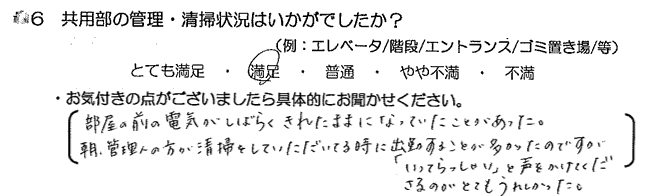 6 共用部の管理・清掃状況はいかがでしたか？
（例：エレベータ/階段/エントランス/ゴミ置き場/等）
とても満足 ・ 満足 ・ 普通 ・ やや不満 ・ 不満
・お気付きの点がございましたら具体的にお聞かせください。
部屋の前の電気がしばらくきれたままになっていたことがあった。
朝、管理人の方が清掃をしていただいてる時に出勤することが多かったのですが
「いってらっしゃい」と声をかけてくだ
さるのがとてもうれしかった。